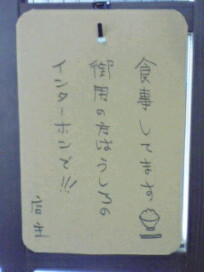 食事してます。
御用の方はうしろの
インターホンで!!!
店主